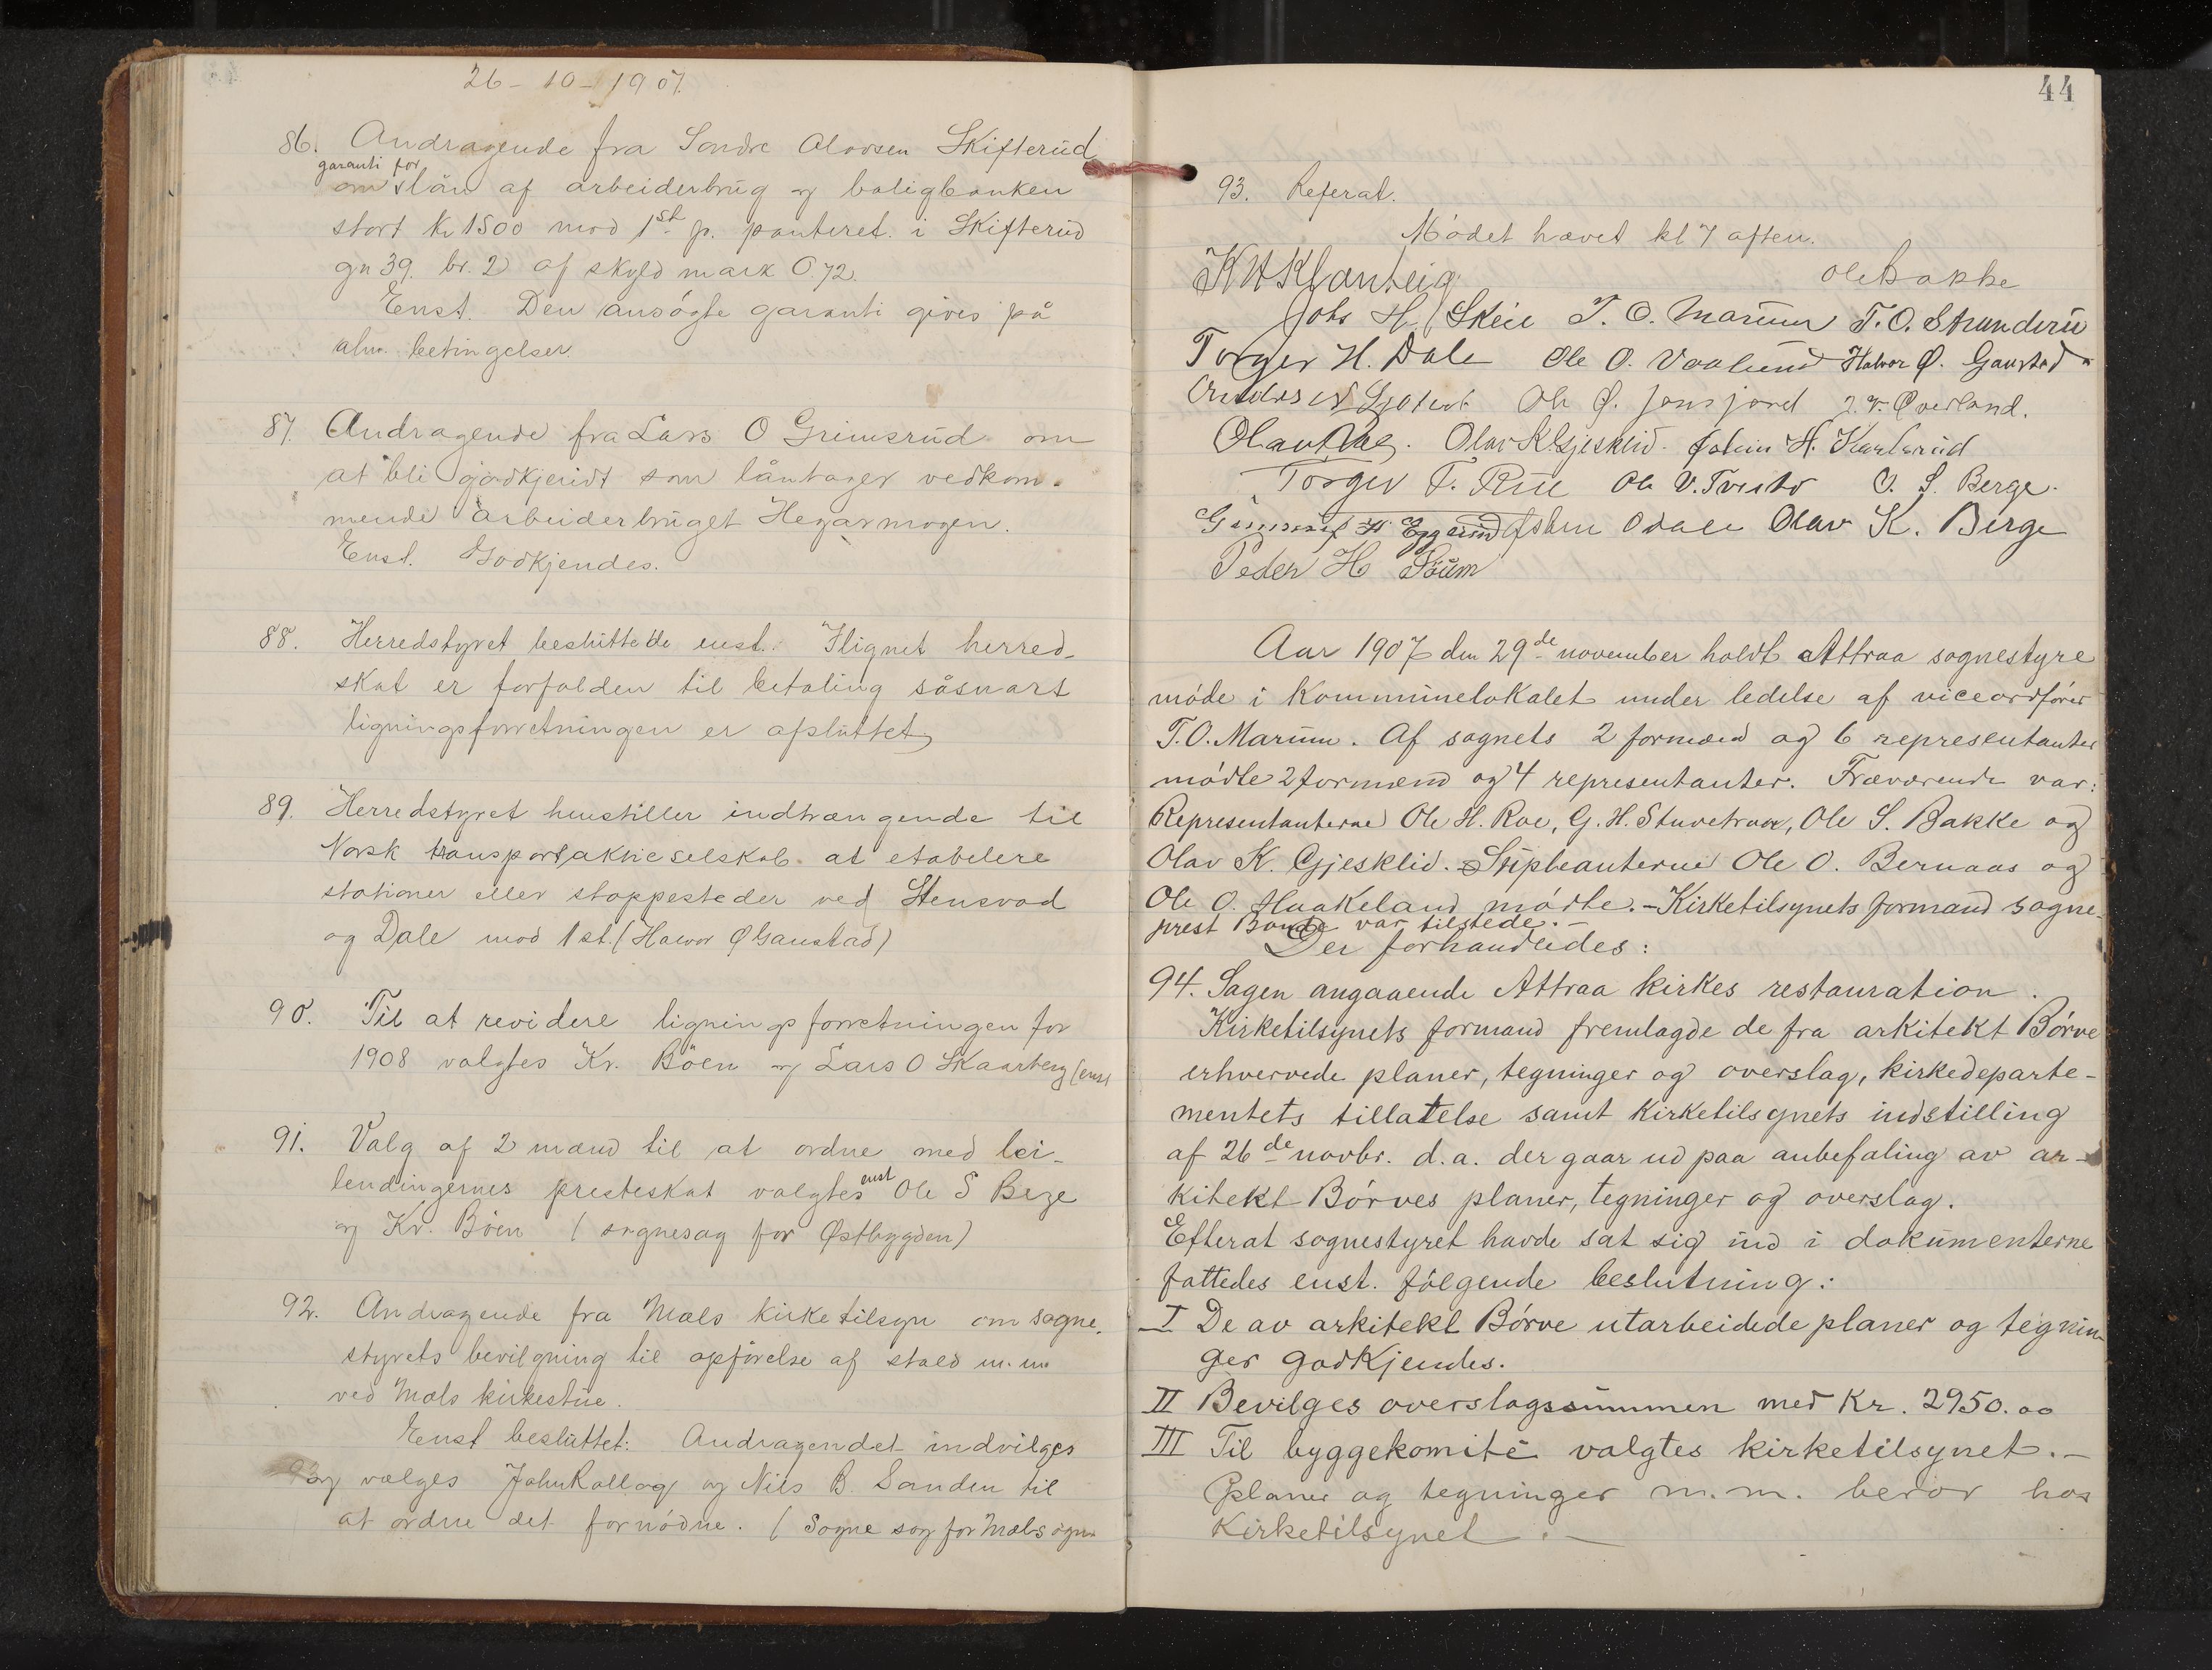 26-10-1907.
86. Andragende fra Sondre Olavsen Skifterud
garanti for
om lån af arbeiderbrug og boligbanken
stort kr 1500 mod 1st p. panteret i Skifterud
gn 39. br. 2 af skyld mark 0.72.
Enst. Den ansögte garanti gives på
alm. betingelser.
87. Andragende fra Lars O Grimsrud om
at bli godkjendt som låntager vedkom-
mende arbeiderbruget Hegarmogen.
Enst. Godkjendes.
88. Herredstyret besluttede enst.: Ilignet herred-
skat er forfalden til betaling såsnart
ligningsforretningen er afsluttet
89. Herredstyret henstiller indtrængende til
Norsk transportaktieselskab at etabelere
stationer eller stoppesteder ved Stensvad
og Dale mod 1 st. (Halvor Ø Gaustad)
90. Til at revidere ligningsforretningen for
1908 valgtes Kr. Böen og Lars O Skaarberg (enst
91. Valg af 2 mænd til at ordne med lei-
lendingernes presteskat valgtes enst Ole S Berge
og Kr. Böen (sognesag for Østbygden)
92. Andragende fra Mæls kirketilsyn om sogne-
styrets bevilgning til opförelse af stald m.m
ved Mæls kirkestue.
Enst besluttet: Andragendet indvilges
og vælges John Rollag og Nils B. Sanden til
at ordne det fornödne. (Sogne sag for Mæl sogn
44
93. Referat.
Mödet hævet kl 7 aften.
Ole Bakke
Johs H. Skeie T. O. Marum T. O. Strunderu
Torger H. Dale Ole O. Vaalund Halvor Ø. Gaustad
Ole Ø. Jonsjord J. V. Øverland.
Olav K. Gjesklid. John H. Karlsrud
Torger T. Rue Ole V. Tveito O. S. Berge.
Gunnulf H. Eggerud Olav K. Berge
Peder H Söum
Aar 1907 den 29de november holdt Attraa sognestyre
möde i kommunelokalet under ledelse af viceordförer
T.O. Marum. Af sognets 2 formænd og 6 representanter
mödte 2 formænd og 4 representanter. Fraværende var:
Representanterne Ole H. Roe, G. H. Stuvetraa, Ole S. Bakke og
Olav K. Gjesklid. - Supleanterne Ole O. Bernaas og
Ole O. Haakeland mödte. - Kirketilsynets formand sogne-
prest Bonde var tilstede. -
Der forhandledes:
94. Sagen angaaende Attraa kirkes restauration.
Kirketilsynets formand fremlagde de fra arkitekt Börve
erhvervede planer, tegninger og overslag, kirkedeparte-
mentets tillatelse samt kirketilsynets indstilling
af 26de novbr. d.a. der gaar ud paa anbefaling av ar-
kitekt Börves planer, tegninger og overslag.
Efterat sognestyret havde sat sig ind i dokumenterne
fattedes enst. fölgende beslutning:
I De av arkitekt Börve utarbeidede planer og tegnin-
ger godkjendes.
II Bevilges overslagssummen med Kr. 2950.00
III Til byggekomité valgtes kirketilsynet. -
Planer og tegninger m.m. beror hos
Kirketilsynet. -